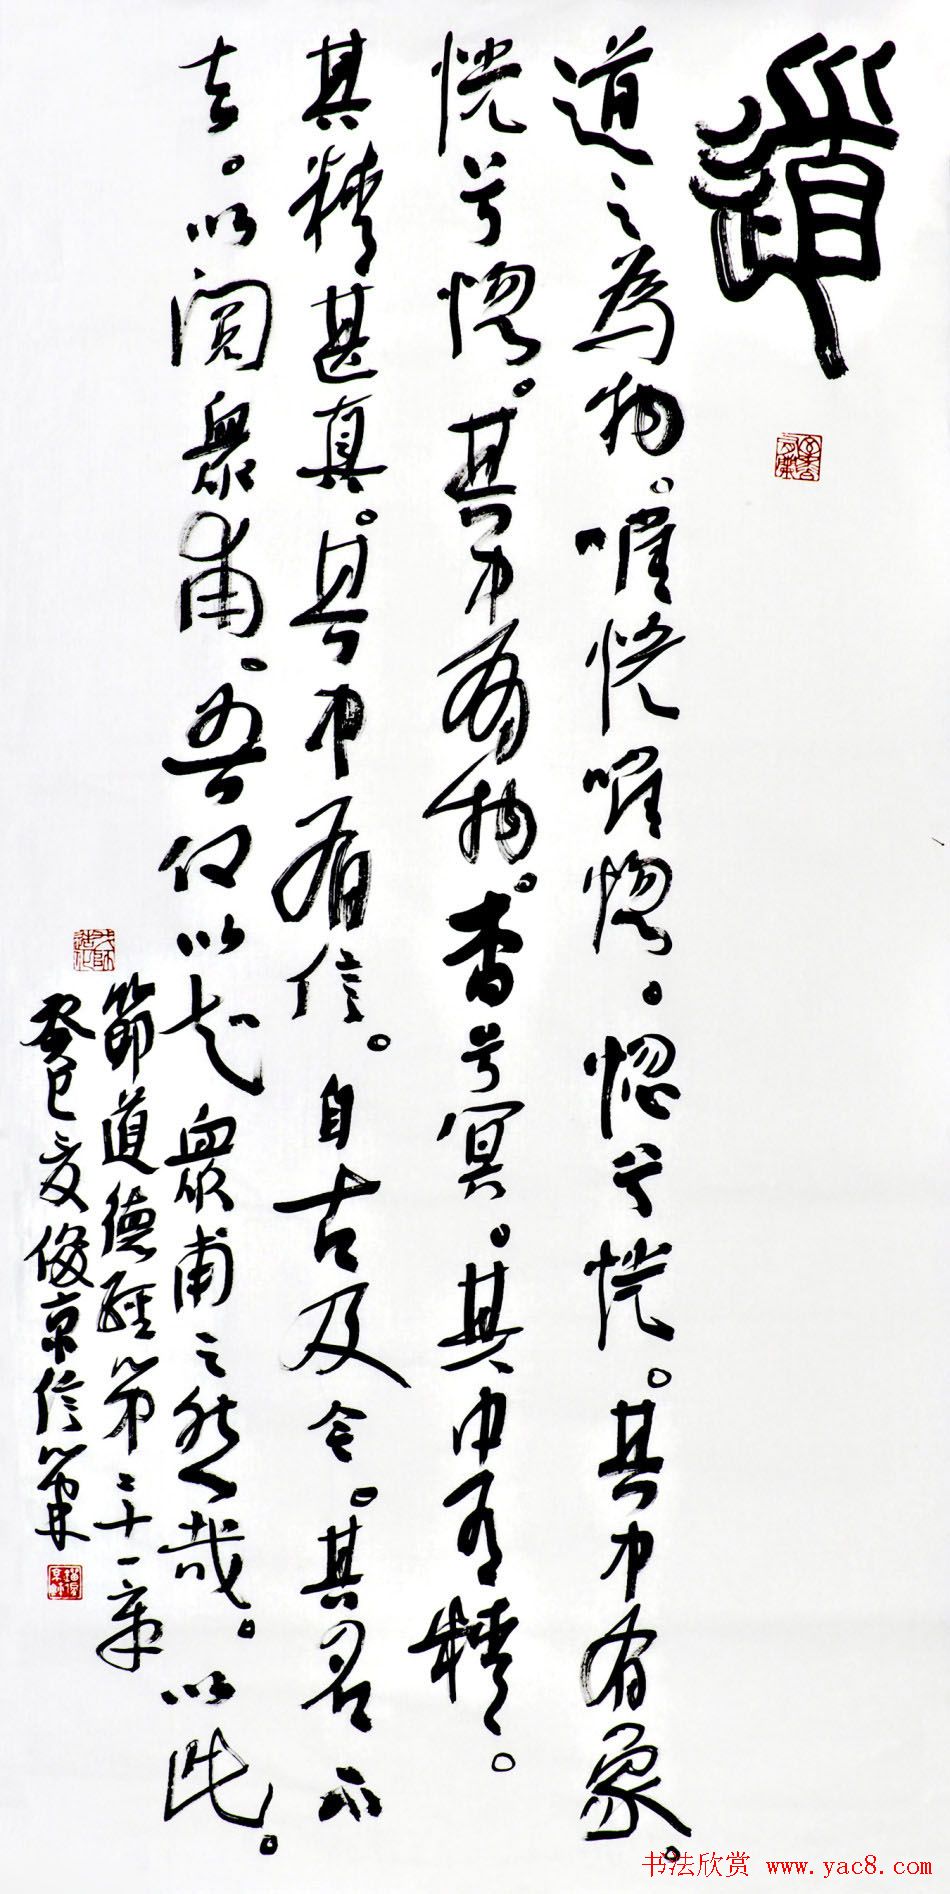 道
道之為物。唯恍唯惚。惚兮恍。其中有象。
恍兮惚。其中有物。杳兮冥。其中有精。
其精甚真。其中有信。自古及今。其名不
去。以閱眾甫、吾何以知眾甫之然哉。以此。
節道德經第二十一章
癸巳夏俊京信筆
书法欣赏 www.yac8.com